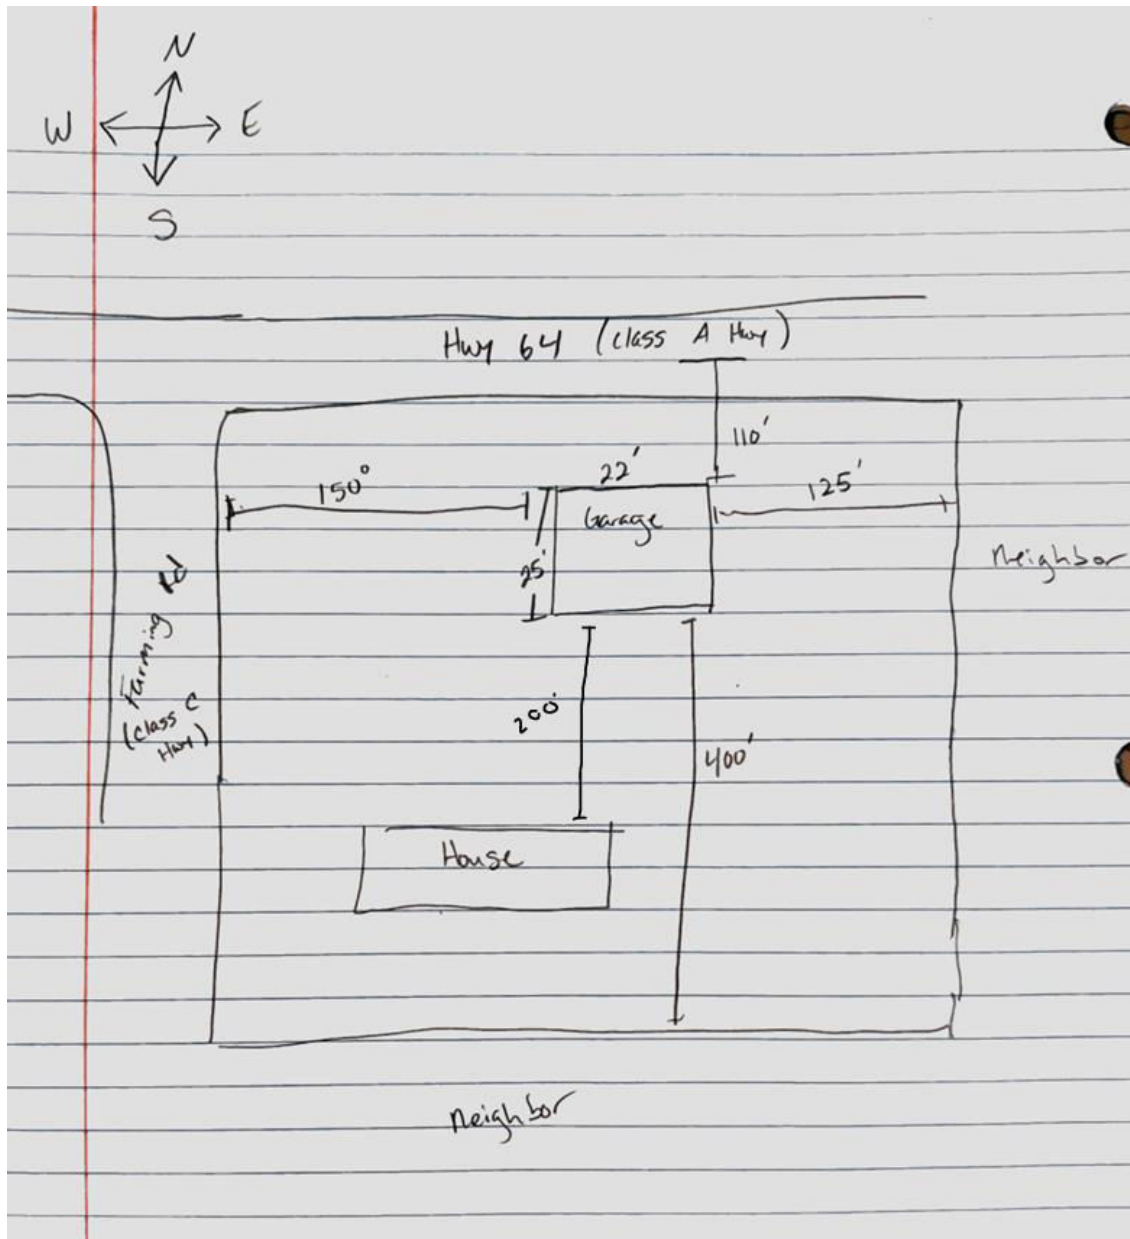 N
W E
S
Hwy 64 (class A Hwy)
110'
22'
150°
125'
Garage
Neighbor
25'
Farming Rd
(class C
Hwy)
200'
400'
House
Neighbor